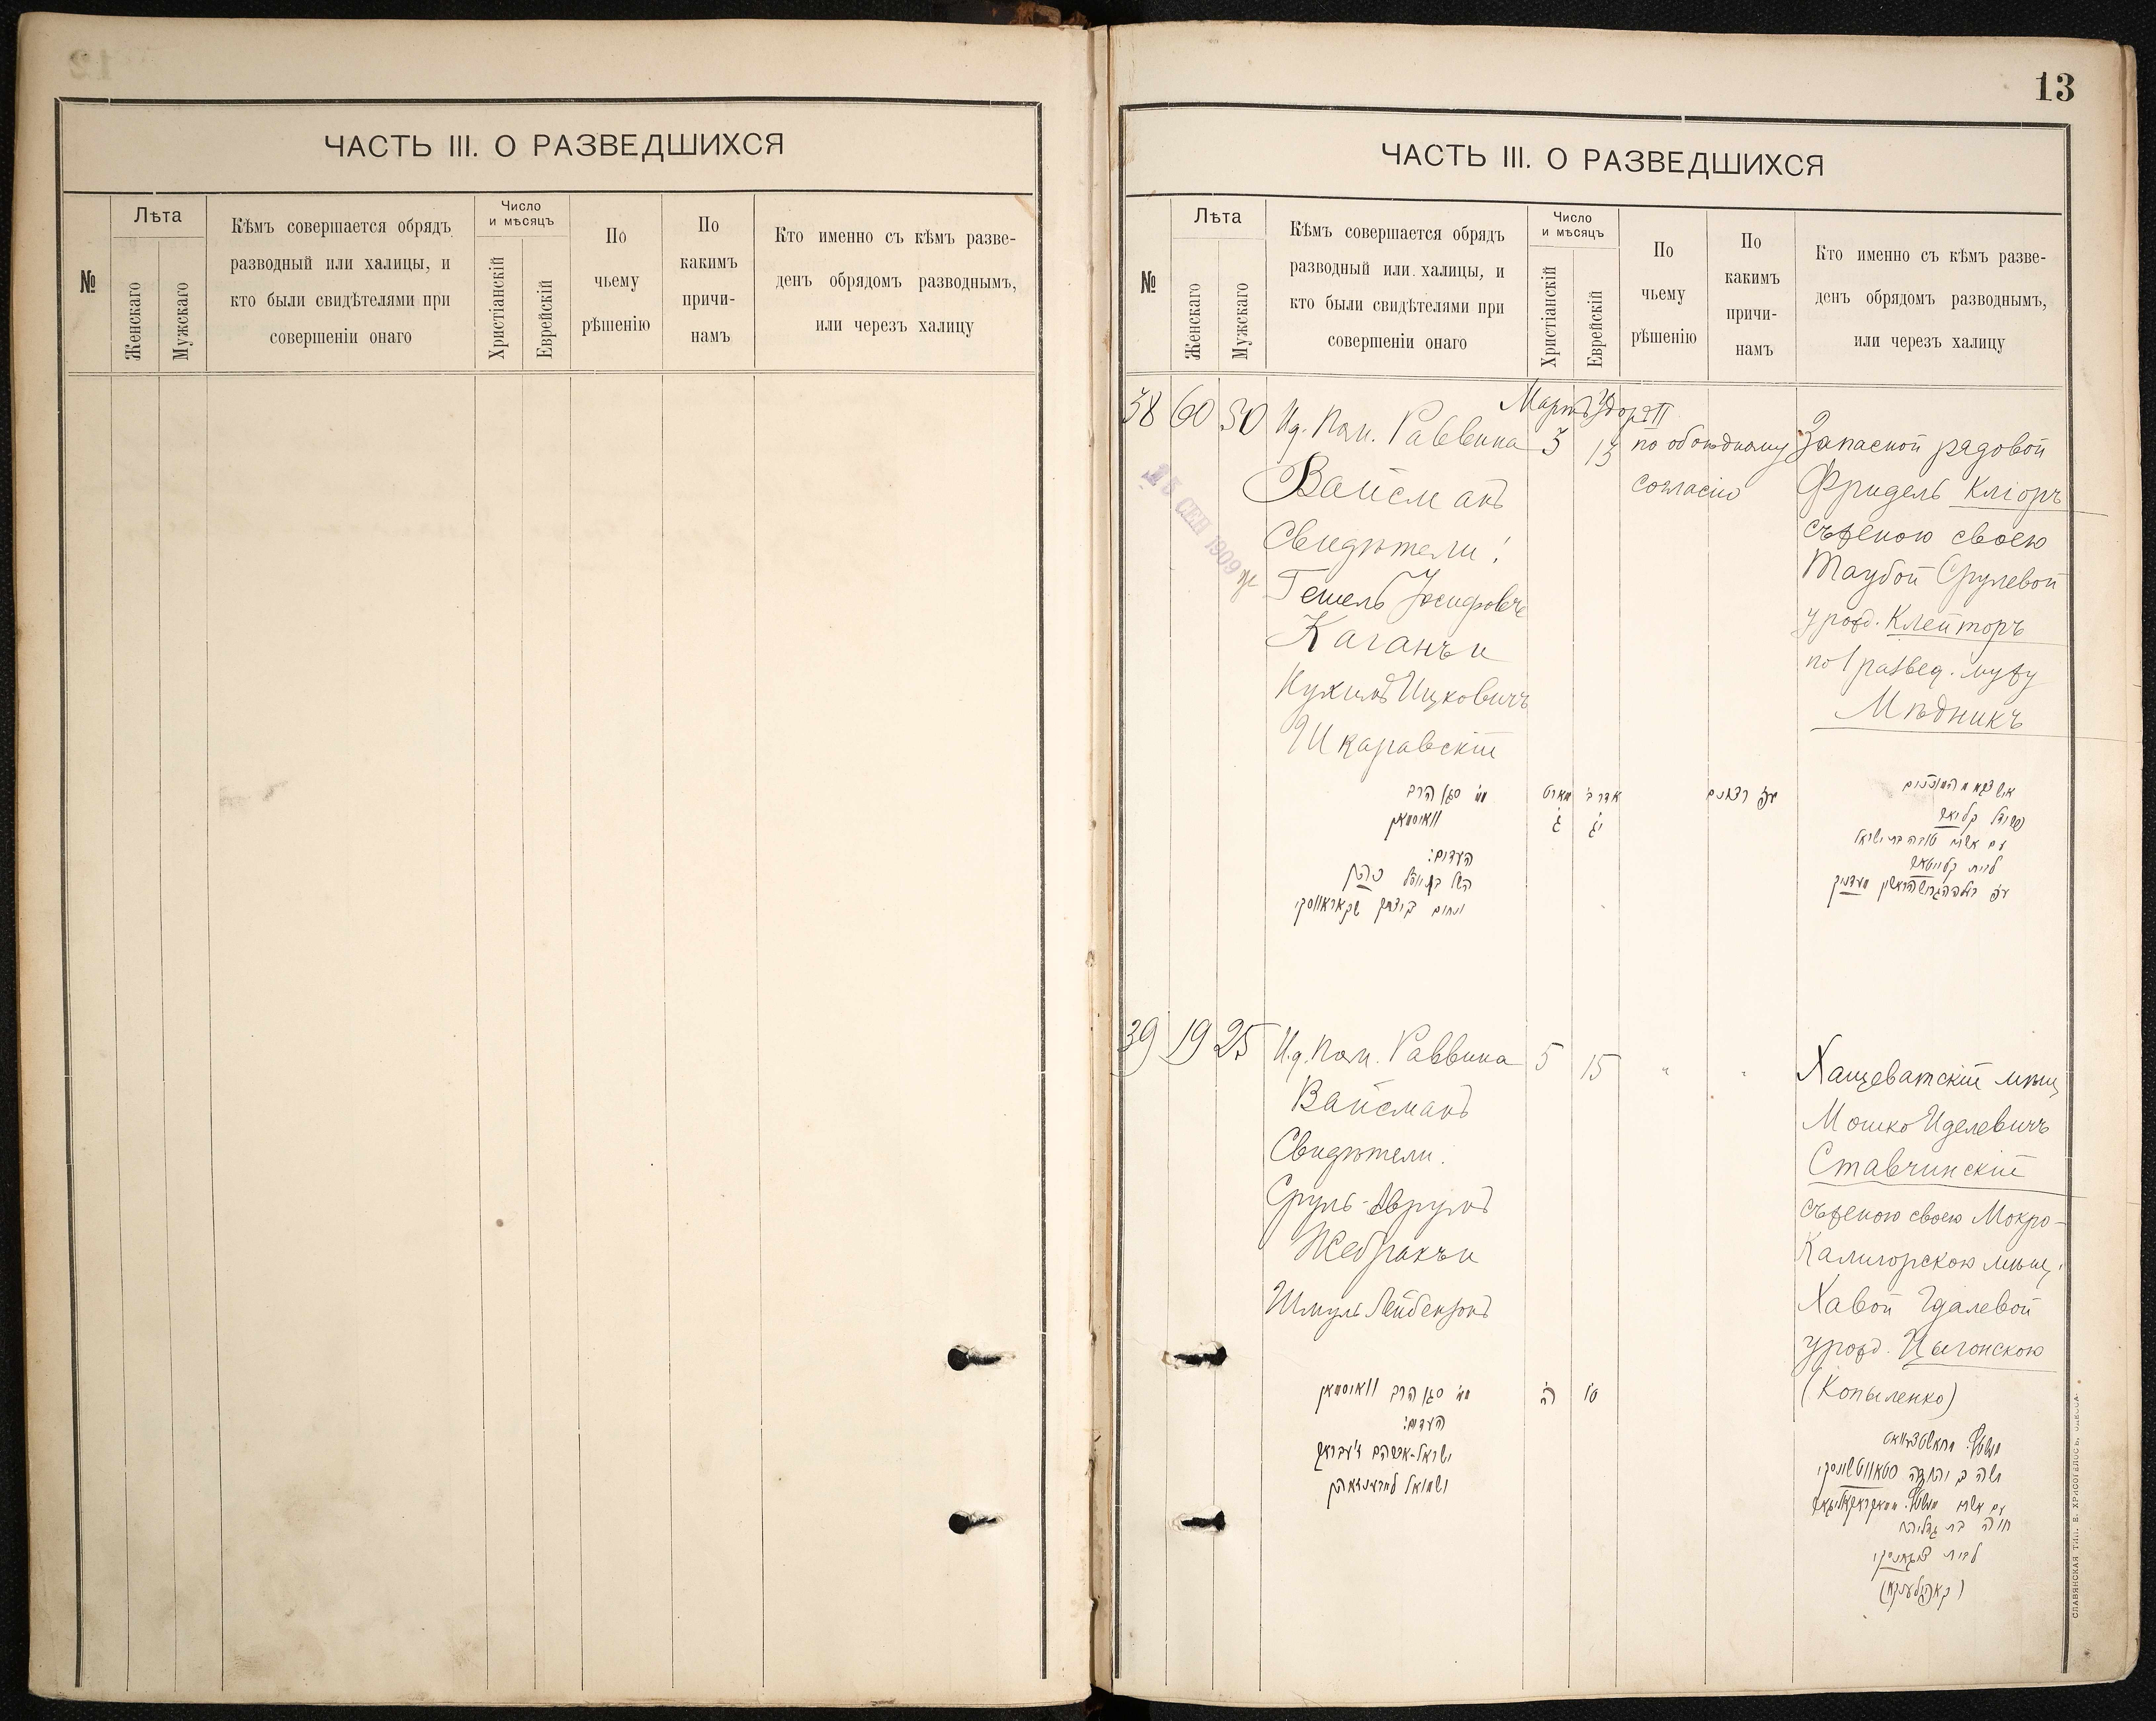 ЧАСТЬ III. О РАЗВЕДШИХСЯ
№
Лѣта
Женскаго
Мужскаго
Кѣмъ совершается обрядъ
разводный или халицы, и
кто были свидѣтелями при
совершеніи онаго
Число
и мѣсяцъ
Христіанскій
Еврейскій
По
чьему
рѣшенію
По
какимъ
причи-
намъ
Кто именно съ кѣмъ разве-
денъ обрядомъ разводнымъ,
или черезъ халицу
13
ЧАСТЬ III. О РАЗВЕДШИХСЯ
№
Лѣта
Женскаго
Мужскаго
Кѣмъ совершается обрядъ
разводный или халицы, и
кто были свидѣтелями при
совершеніи онаго
Число
и мѣсяцъ
Христіанскій
Еврейскій
По
чьему
рѣшенію
По
какимъ
причи-
намъ
Кто именно съ кѣмъ разве-
денъ обрядомъ разводнымъ,
или черезъ халицу
38 60 50
И.д. Пом. Раввина
Вайсманъ
Свидѣтели:
Гешель Іосифовичъ
Каганъ и
Ицковичъ
Шкаравскій
Мартъ
3
13
по обоюдному
согласію
Запасной рядовой
Фридель Кліоръ
съ женою своею
Таубой Срулевой
урожд. Клейторъ
по 1 развед. мужу
Мѣдникъ
25 СЕН 1909
סגן הרב
וואיסמאן
העדים:
מארט
ג
אדר ב׳
יג
39 19 25
И.д. Пом. Раввина
Вайсманъ
Свидѣтели.
Сруль-Аврумъ
Жебракъ и
Шмуль Лейбензонъ
5
15
"
"
Хащеватскій мѣщ.
Мошко Иделевичъ
Ставчинскій
съ женою своею Мокро-
Калигорскою мѣщ.
Хавой Гдалевой
урожд. Цыгонскою
(Копыленко)
סגן הרב וואיסמאן
העדים:
ישראל-אברהם זשעבראק
ה
טו
חוה בת גדליה
СЛАВЯНСКАЯ ТИП. Е. ХРИСОГЕЛОСЪ, ОДЕССА.